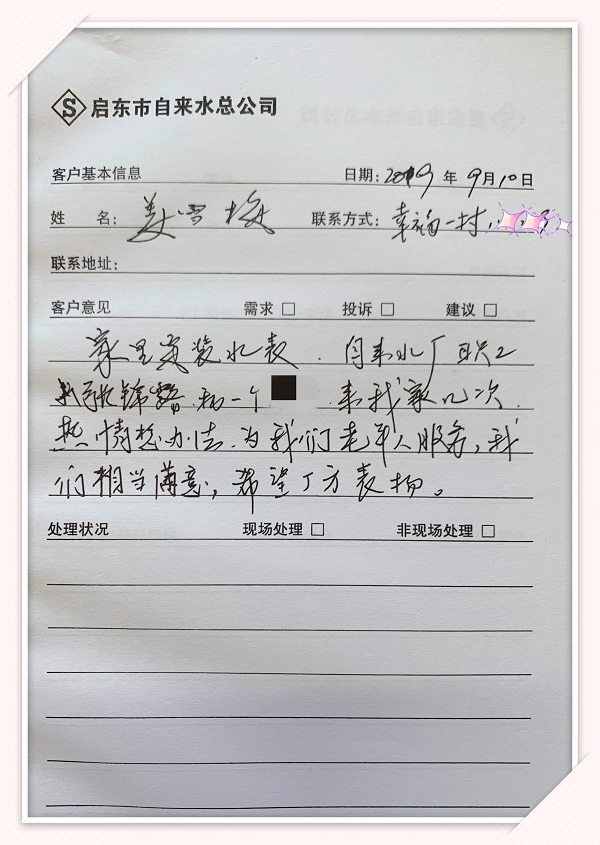 S 启东市自来水总公司
客户基本信息 日期: 2019 年 9月10日
姓 名: 姜雪梅 联系方式: 幸福一村
联系地址:
客户意见 需求 □ 投诉 □ 建议 □
家里安装水表. 自来水厂职工
锦 和一个 来我家几次.
热情想办法.为我们老年人服务,我
们相当满意,希望厂方表扬。
处理状况 现场处理 □ 非现场处理 □